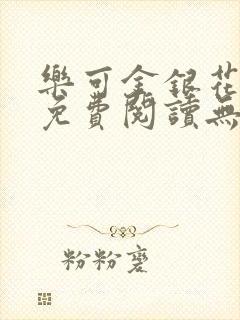 樂可金銀花
免費閱讀無
粉粉麼